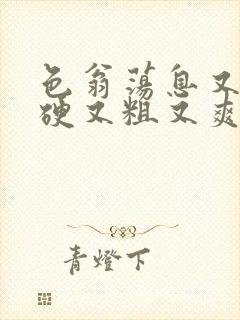 色翁荡息又
硬又粗又爽
青燈下